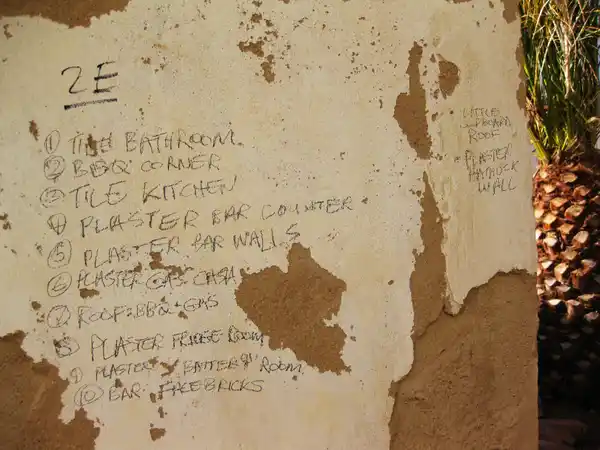 2E
① TILE BATHROOM.
② BBQ CORNER
③ TILE KITCHEN
④ PLASTER BAR COUNTER
⑤ PLASTER BAR WALLS
⑥ PLASTER GAS CASA
⑦ ROOF: BBQ + GAS
⑧ PLASTER FRIDGE ROOM
⑨ PLASTER "BATTERY" ROOM
⑩ BAR: FACEBRICKS
LITTLE
ROOF
PLASTER
WALL